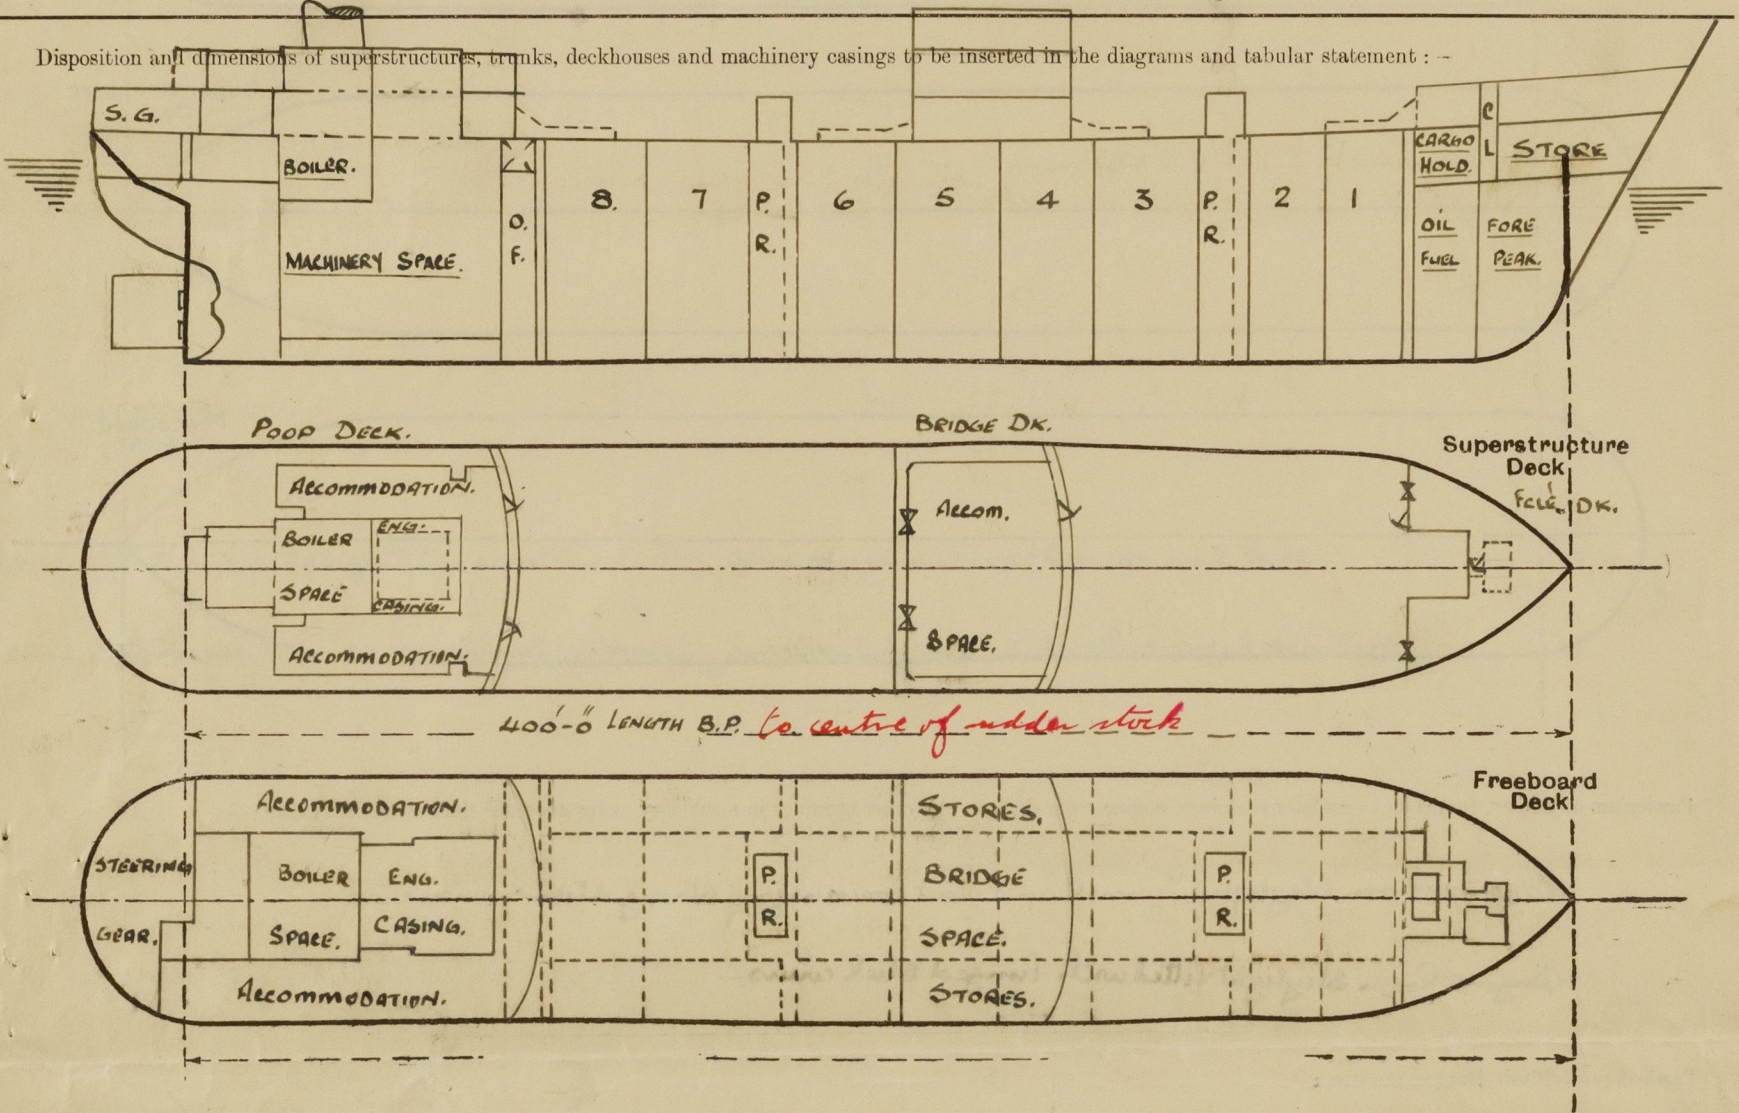 Disposition and dimensions of superstructures, trunks, deckhouses and machinery casings to be inserted in the diagrams and tabular statement : —
S. G.
BOILER.
MACHINERY SPACE.
O.
F.
8.
7
P.
R.
6
5
4
3
P.
R.
2
1
CARGO
HOLD.
C
L
STORE
OIL
FUEL
FORE
PEAK.
POOP DECK.
BRIDGE DK.
Superstructure
Deck
FCLE. DK.
ACCOMMODATION.
BOILER
SPACE
ENG.
CASING.
ACCOMMODATION.
ACCOM.
SPACE.
400'-0" LENGTH B.P. to centre of rudder stock
Freeboard
Deck
ACCOMMODATION.
STEERING
GEAR.
BOILER
SPACE.
ENG.
CASING.
ACCOMMODATION.
P.
R.
STORES.
BRIDGE
SPACE.
STORES.
P.
R.